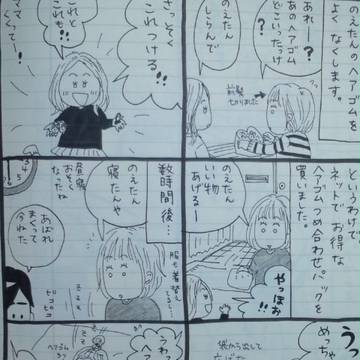 のえたんのヘアゴムを
よくなくします。
あれー?
あのヘアゴム
どこいったっけ
?
のえたん
しらんで
前髪
切りました
というわけで
ネットでお得な
ヘアゴム詰め合わせパックを
買いました。
のえたん
いい物
あげるー
やっほお
!!
めっちゃ
袋から出して
さっそく
これつける!!
これと
これも!!
ママ
くくってー!
数時間後…
服も着替え
のえたん
寝たんや
昼寝
おそく
なったね
あばれ
まくって
今ねた
ピコ
ピコ
うわっ
ヘアゴム